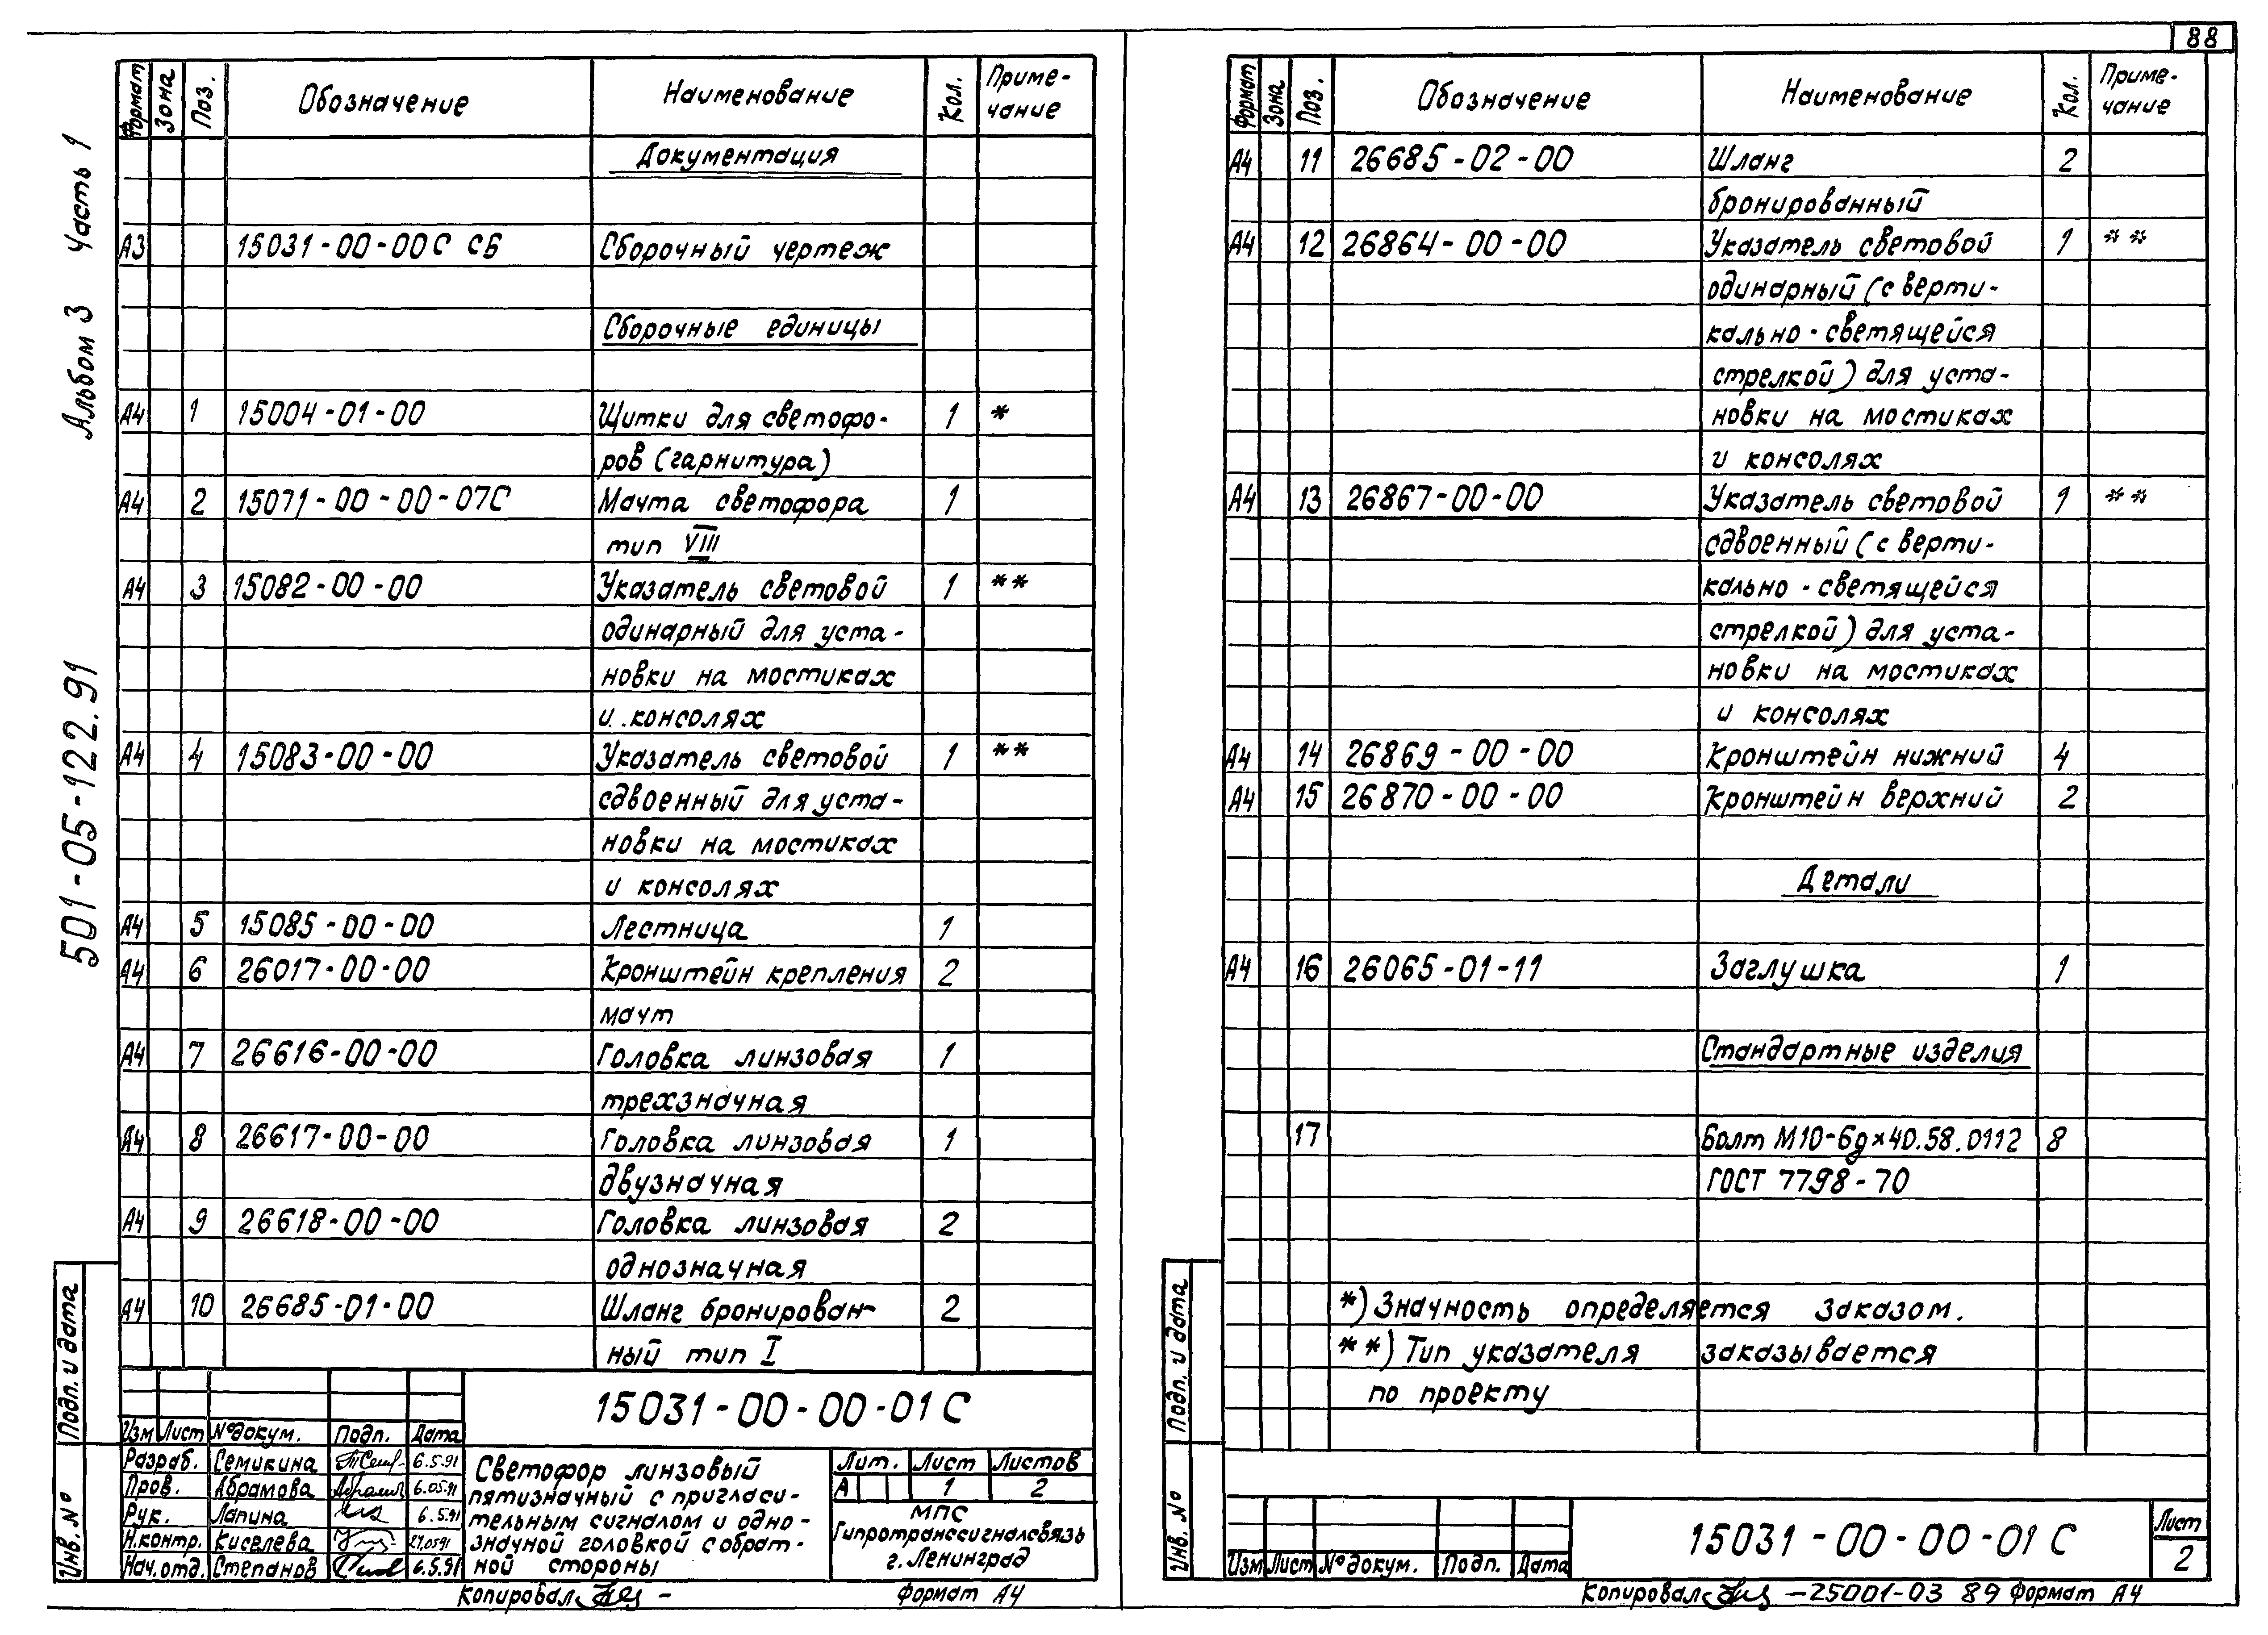 88
Альбом 3 Часть 1
501-05-122.91
Формат Зона Поз. Обозначение Наименование Кол. Приме-
чание
Документация
А3 15031-00-00С СБ Сборочный чертеж
Сборочные единицы
А4 1 15004-01-00 Щитки для светофо- 1 *
ров (гарнитура)
А4 2 15071-00-00-07С Мачта светофора 1
тип VIII
А4 3 15082-00-00 Указатель световой 1 **
одинарный для уста-
новки на мостиках
и консолях
А4 4 15083-00-00 Указатель световой 1 **
сдвоенный для уста-
новки на мостиках
и консолях
А4 5 15085-00-00 Лестница 1
А4 6 26017-00-00 Кронштейн крепления 2
мачт
А4 7 26616-00-00 Головка линзовая 1
трехзначная
А4 8 26617-00-00 Головка линзовая 1
двузначная
А4 9 26618-00-00 Головка линзовая 2
однозначная
А4 10 26685-01-00 Шланг бронирован- 2
ный тип I
Подп. и дата
Инв. №
15031-00-00-01С
Изм Лист № докум. Подп. Дата
Разраб. Семикина 6.5.91
Пров. Абрамова 6.05.91
Рук. Лапина 6.5.91
Н.контр. Киселева 27.05.91
Нач.отд. Степанов 6.5.91
Светофор линзовый
пятизначный с пригласи-
тельным сигналом и одно-
значной головкой с обрат-
ной стороны
Лит. Лист Листов
А 1 2
МПС
Гипротранссигналсвязь
г. Ленинград
Копировал Формат А4
Формат Зона Поз. Обозначение Наименование Кол. Приме-
чание
А4 11 26685-02-00 Шланг 2
бронированный
А4 12 26864-00-00 Указатель световой 1 **
одинарный (с верти-
кально-светящейся
стрелкой) для уста-
новки на мостиках
и консолях
А4 13 26867-00-00 Указатель световой 1 **
сдвоенный (с верти-
кально-светящейся
стрелкой) для уста-
новки на мостиках
и консолях
А4 14 26869-00-00 Кронштейн нижний 4
А4 15 26870-00-00 Кронштейн верхний 2
Детали
А4 16 26065-01-11 Заглушка 1
Стандартные изделия
17 Болт М10-6g×40.58.0112 8
ГОСТ 7798-70
*) Значность определяется заказом.
**) Тип указателя заказывается
по проекту
Подп. и дата
Инв. №
Изм Лист № докум. Подп. Дата
15031-00-00-01С
Лист
2
Копировал -25001-03 89 Формат А4